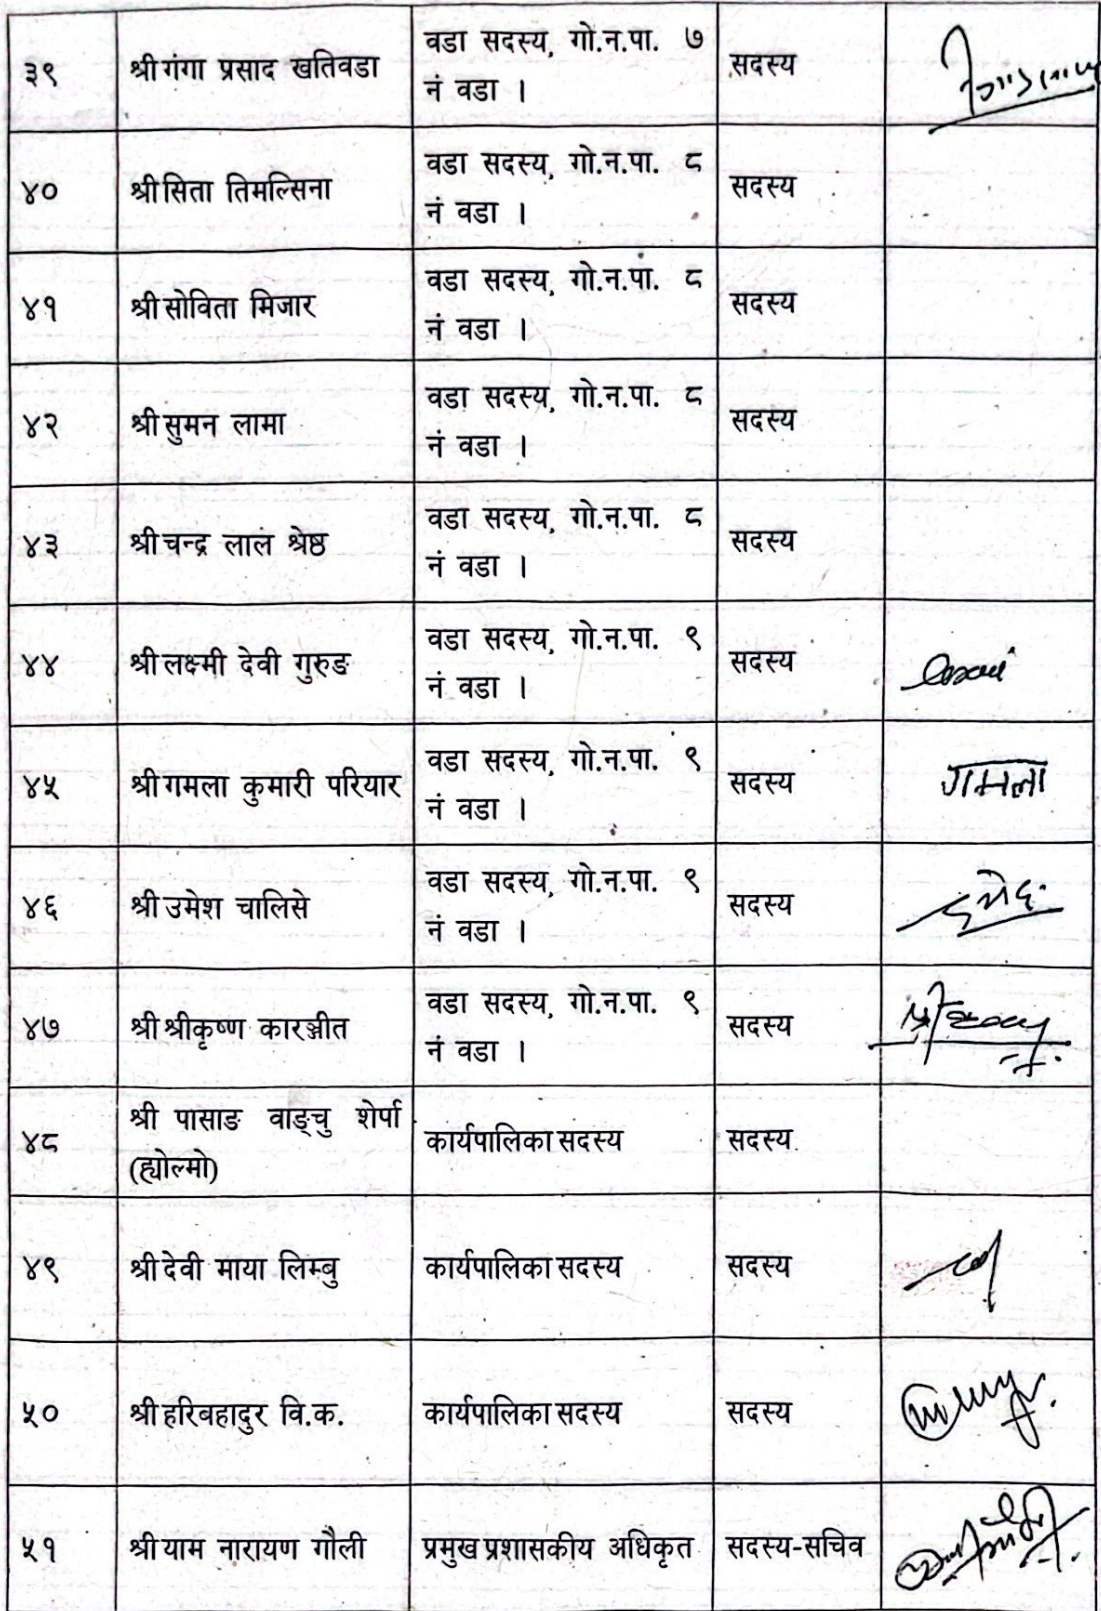 ३९ श्री गंगा प्रसाद खतिवडा वडा सदस्य, गो.न.पा. ७ सदस्य
नं वडा ।
४० श्री सिता तिमल्सिना वडा सदस्य, गो.न.पा. ८ सदस्य
नं वडा ।
४१ श्री सोविता मिजार वडा सदस्य, गो.न.पा. ८ सदस्य
नं वडा ।
४२ श्री सुमन लामा वडा सदस्य, गो.न.पा. ८ सदस्य
नं वडा ।
४३ श्री चन्द्र लाल श्रेष्ठ वडा सदस्य, गो.न.पा. ८ सदस्य
नं वडा ।
४४ श्री लक्ष्मी देवी गुरुङ वडा सदस्य, गो.न.पा. ९ सदस्य
नं वडा ।
४५ श्री गमला कुमारी परियार वडा सदस्य, गो.न.पा. ९ सदस्य गमला
नं वडा ।
४६ श्री उमेश चालिसे वडा सदस्य, गो.न.पा. ९ सदस्य
नं वडा ।
४७ श्री श्रीकृष्ण कारञ्जीत वडा सदस्य, गो.न.पा. ९ सदस्य
नं वडा ।
४८ श्री पासाङ वाङ्चु शेर्पा कार्यपालिका सदस्य सदस्य
(ह्योल्मो)
४९ श्री देवी माया लिम्बु कार्यपालिका सदस्य सदस्य
५० श्री हरिबहादुर वि.क. कार्यपालिका सदस्य सदस्य
५१ श्री याम नारायण गौली प्रमुख प्रशासकीय अधिकृत सदस्य-सचिव